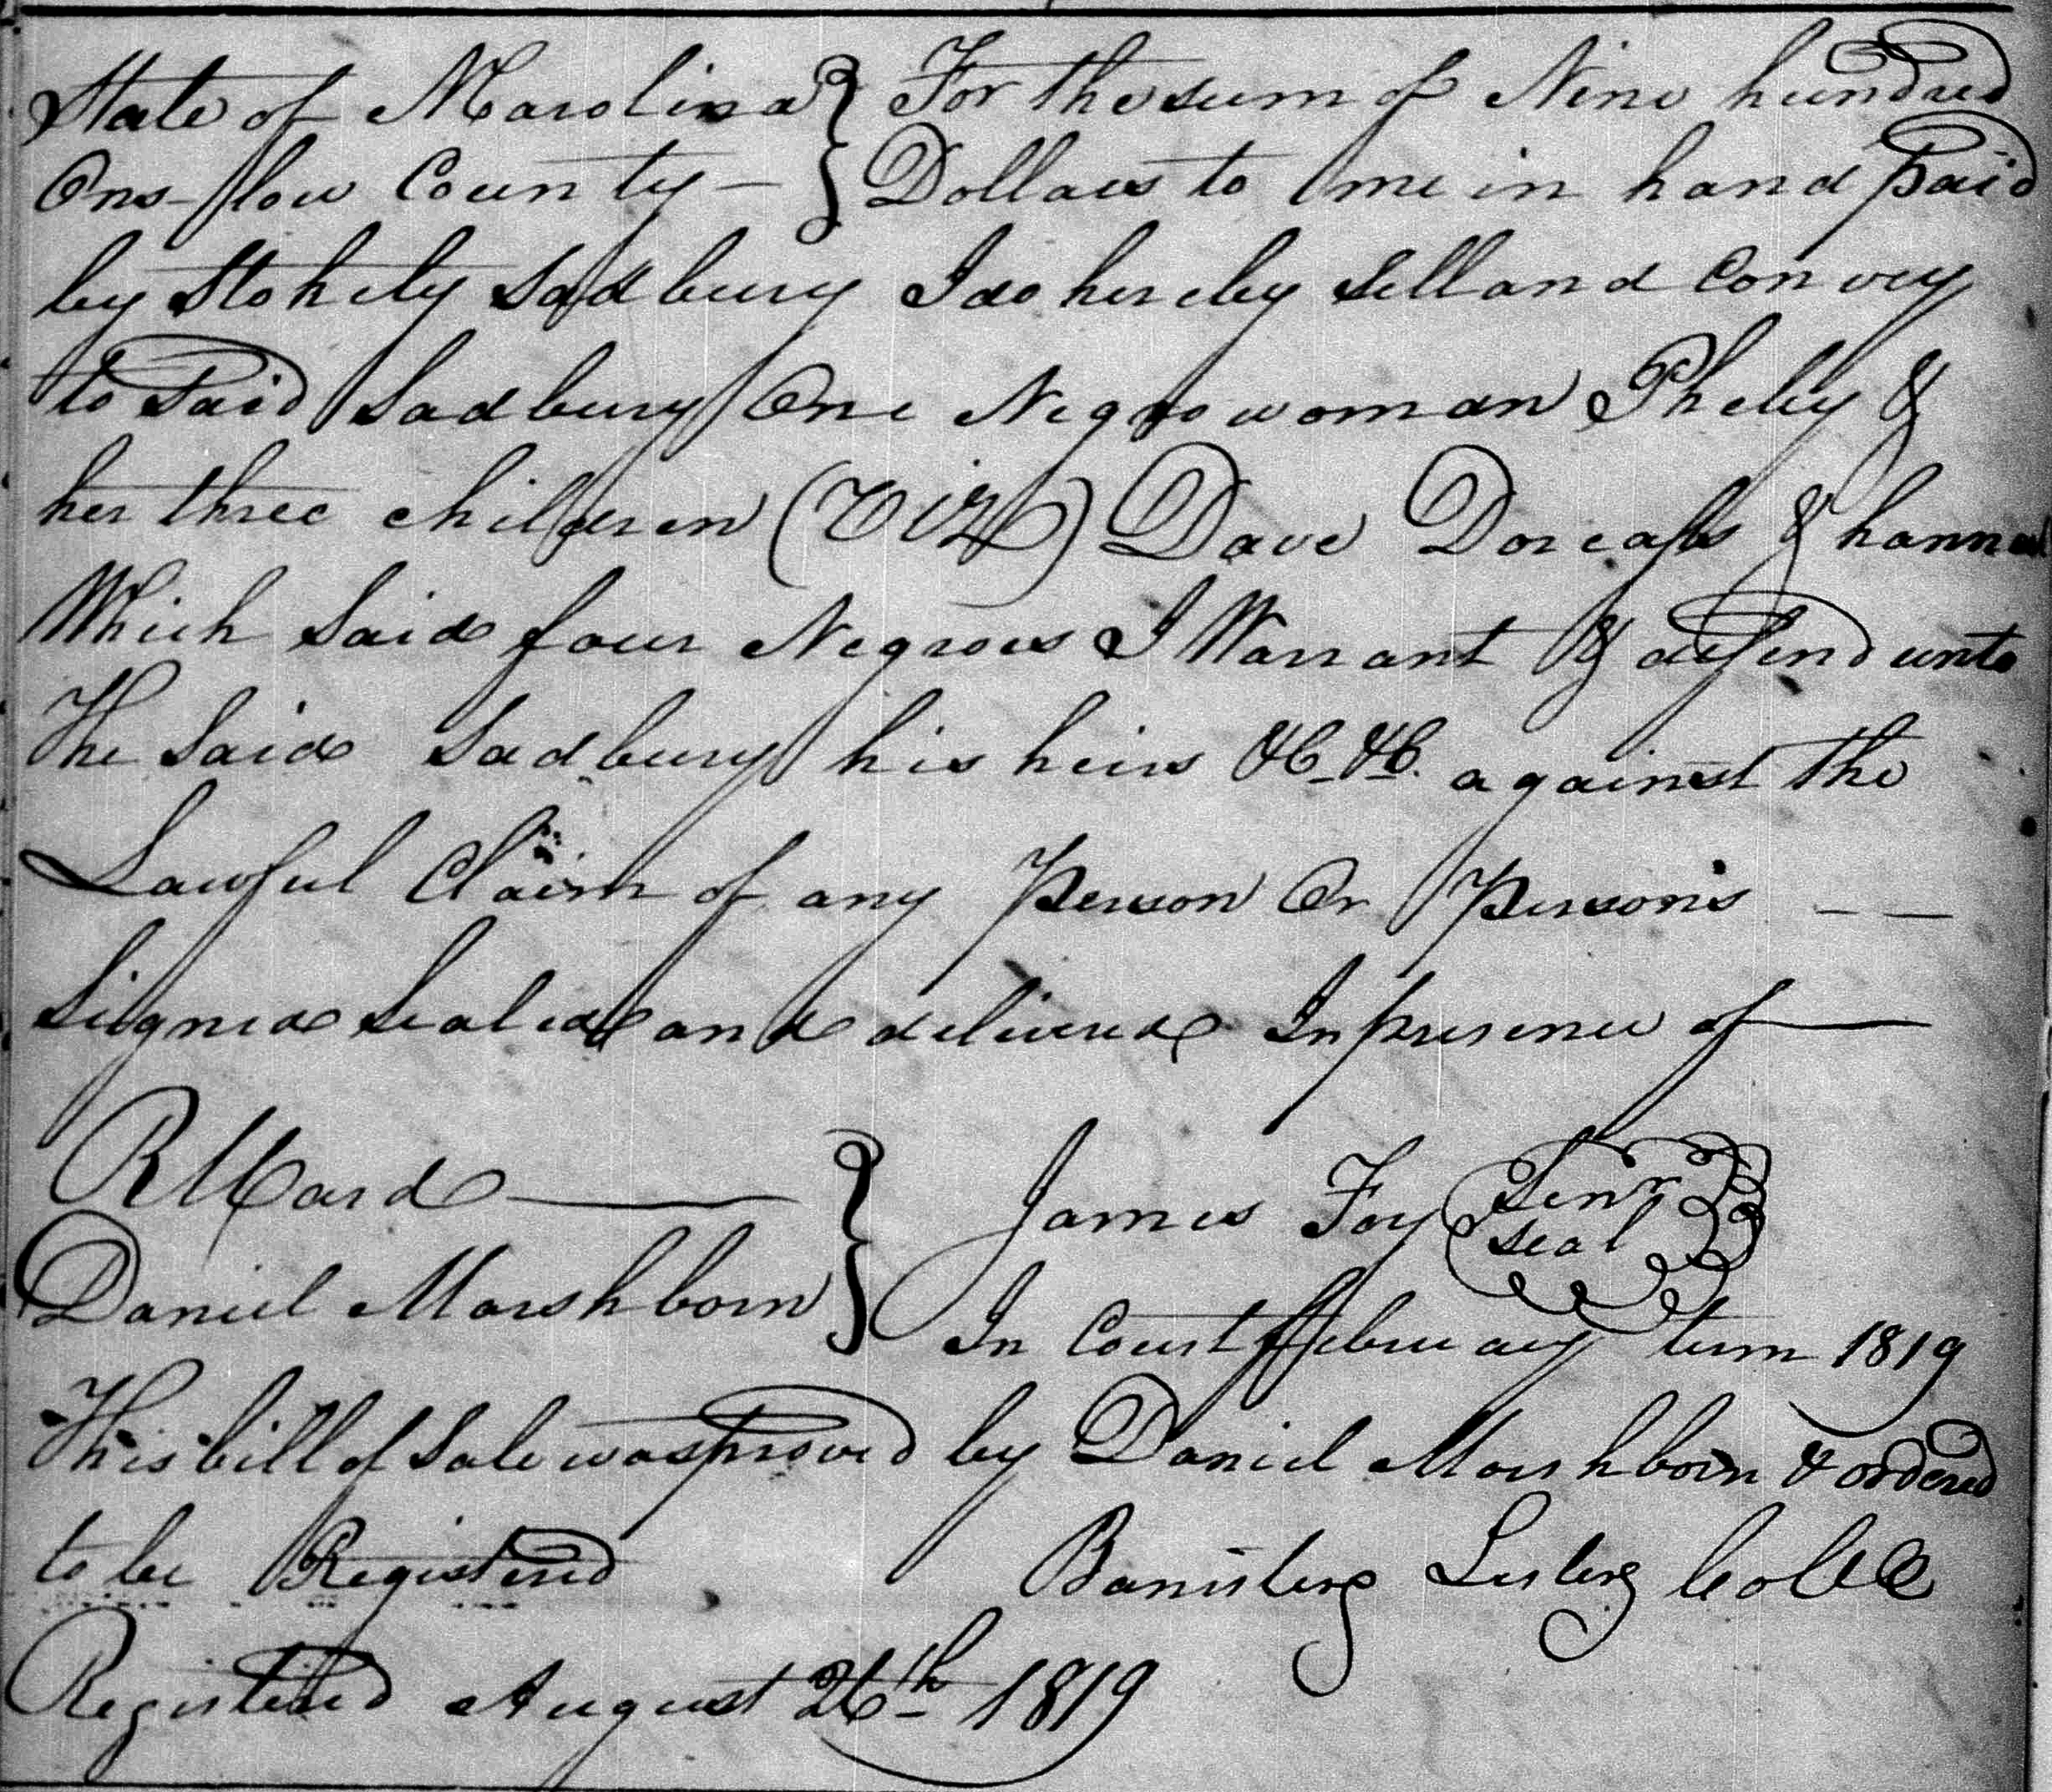 State of NCarolina } For the sum of Nine hundred
Ons-low County — } Dollars to me in hand paid
by Stokely Sadbury I do hereby Sell and Convey
to Said Sadbury One Negro woman Pheby &
her three children (Viz) Dave Dorcass & hannah
Which Said four Negroes I Warrant & defend unto
The Said Sadbury his heirs &C &C. against the
Lawful Claim of any Person Or Persons — —
Signed Sealed and delivered In presence of —
R Ward — } James Foy Senr
seal
Daniel Marshborn } In Court February term 1819
This bill of Sale was proved by Daniel Marshborn & ordered
to be Registered Banister Lester
Registered August 26th 1819